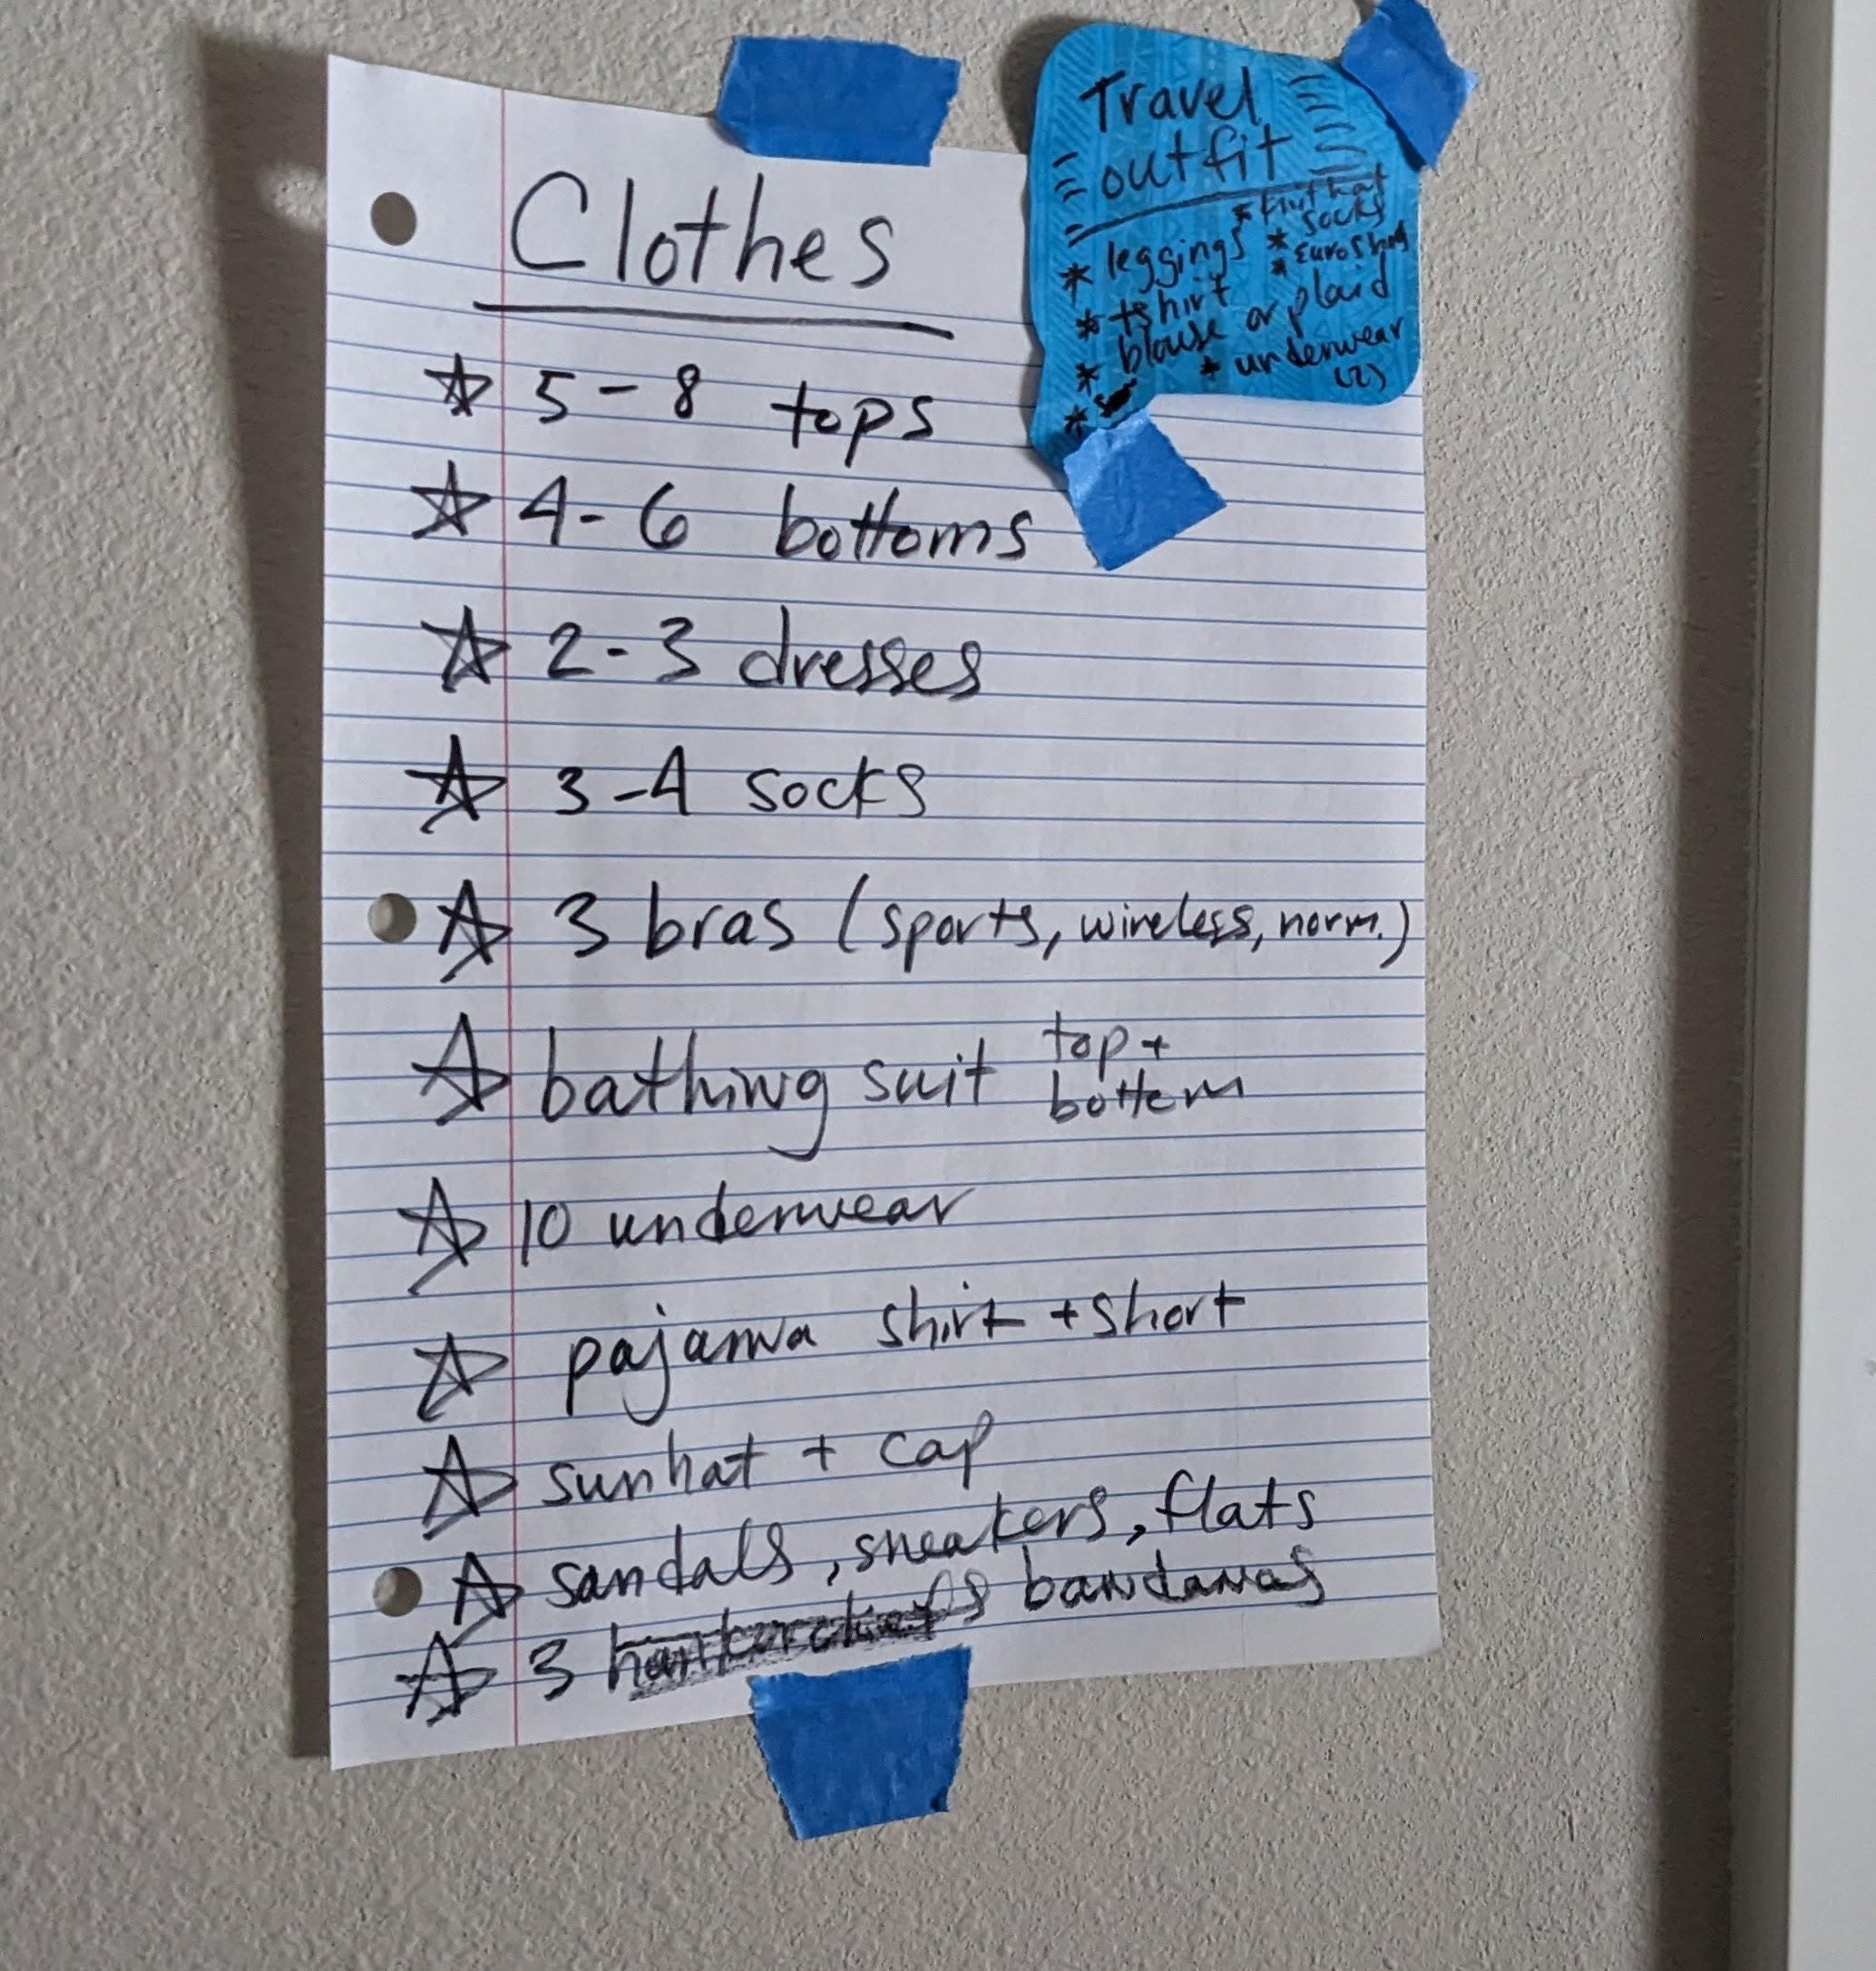 Clothes
5-8 tops
4-6 bottoms
2-3 dresses
3-4 socks
3 bras (sports, wireless, norm.)
bathing suit top +
bottom
10 underwear
pajama shirt + short
sunhat + cap
sandals, sneakers, flats
3 bandanas
Travel
outfit
* knit hat
* leggings * socks
* tshirt
* blouse or plaid
* underwear
(2)
*